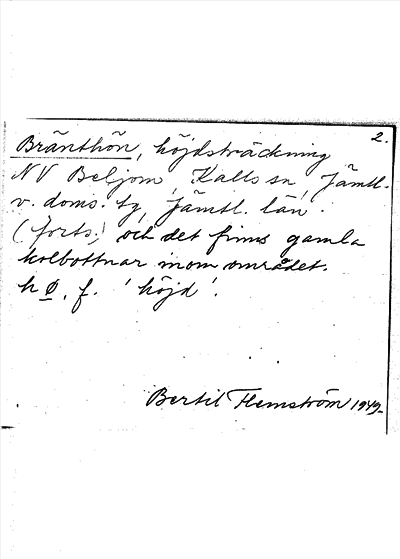 2.
Bränthön, höjdsträckning
NV Beljom, Kalls sn, Jämtl.
v. doms. tg, Jämtl. län.
(forts.) och det finns gamla
kolbottnar inom området.
h ø, f. 'höjd'.
Bertil Flemström 1949.